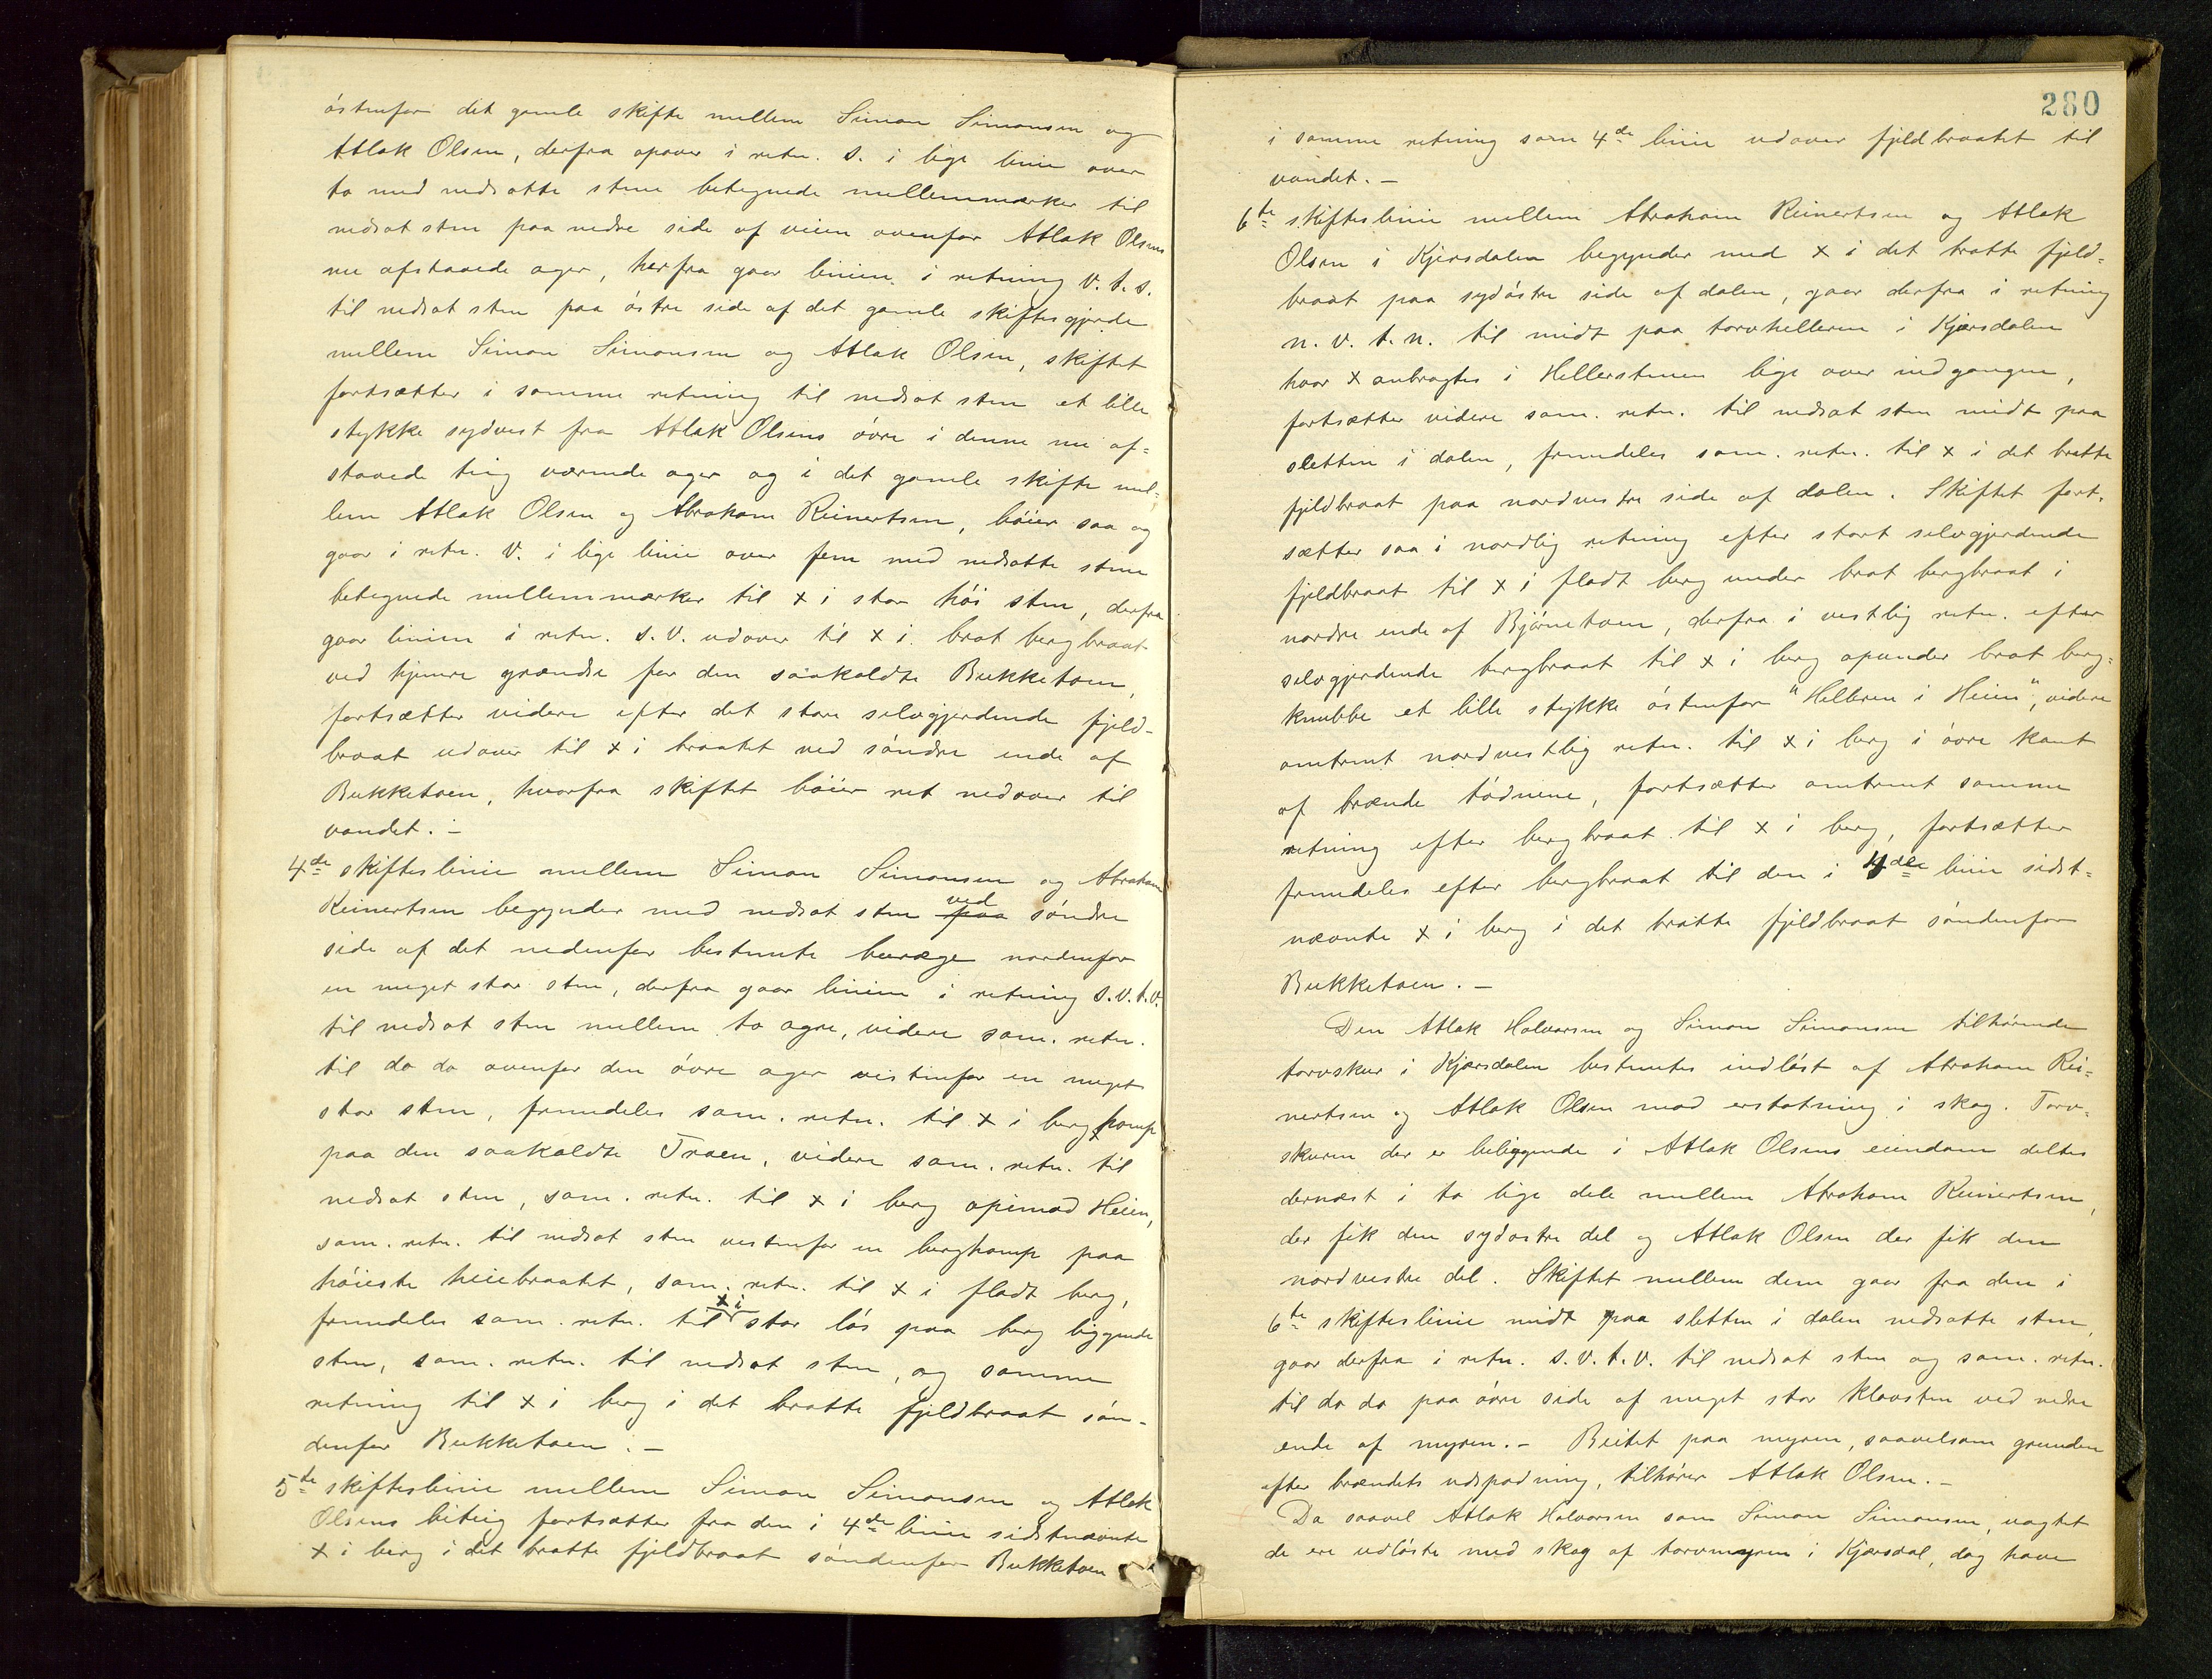 östenfor det gamle skifte mellem Simon Simonsen og
Atlak Olsen, derfra opover i retn. S. i lige linie over
to med nedsatte stene betegnede mellemmærker til
nedsat sten paa nedre side af veien ovenfor Atlak Olsens
nu afstaaede ager, herfra gaar linien i retning V. t. S.
til nedsat sten paa östre side af det gamle skiftesgjerde
mellem Simon Simonsen og Atlak Olsen, skiftet
fortsætter i samme retning til nedsat sten et lille
stykke sydvest fra Atlak Olsens övre i denne nu af=
staaede teig værende ager og i det gamle skifte mel=
lem Atlak Olsen og Abraham Reinertsen, böier saa og
gaar i retn. V. i lige linie over fem med nedsatte stene
betegnede mellemmærker til x i stor höi sten, derfra
gaar linien i retn. S.V. udover til x i brat bergbraat
ved hjemre grændse for den saakaldte Bukketoen,
fortsætter videre efter det store selvgjerdende fjeld-
braat udover til x i braatet ved söndre ende af
Bukketoen, hvorfra skiftet böier ret nedover til
vandet. –
4de skifteslinie mellem Simon Simonsen og Abraham
Reinertsen begynder med nedsat sten paa ved söndre
side af det nedenfor bestemte bævege nordenfor
en meget stor sten, derfra gaar linien i retning S.V.t.V.
til nedsat sten mellem to agre, videre sam. retn.
til do do ovenfor den övre ager vestenfor en meget
stor sten, fremdeles sam. retn. til x i berghamp
paa den saakaldte Traen, videre sam. retn. til
nedsat sten, sam. retn. til x i berg opimod Heien,
sam. retn. til nedsat sten vestenfor en berghamp paa
höieste heiebraatet, sam. retn. til x i fladt berg,
fremdeles sam. retn. til x i stor lös paa berg liggende
sten, sam. retn. til nedsat sten, og samme
retning til x i berg i det bratte fjeldbraat sön-
denfor Bukketoen. –
5te skifteslinie mellem Simon Simonsen og Atlak
Olsens biteig fortsætter fra den i 4de linie sidstnævnte
x i berg i det bratte fjeldbraat söndenfor Bukketoen
280
i samme retning som 4de linie udover fjeldbraatet til
vandet. –
6te skifteslinie mellem Abraham Reinertsen og Atlak
Olsen i Kjersdalen begynder med x i det bratte fjeld=
braat paa sydöstre side af dalen, gaar derfra i retning
n. v. t. n. til midt paa torvhelleren i Kjærsdalen
hvor x anbragtes i Hellerstenen lige over indgangen,
fortsætter videre sam. retn. til nedsat sten midt paa
sletten i dalen, fremdeles sam. retn. til x i det bratte
fjeldbraat paa nordvestre side af dalen. Skiftet fort-
sætter saa i nordlig retning efter stort selvgjerdende
fjeldbraat til x i fladt berg under brat bergbraat i
nordre ende af Björnetoen, derfra i vestlig retn. efter
selvgjerdende bergbraat til x i berg opunder brat berg=
knubbe et lille stykke östenfor "Helleren i Heien", videre
omtrent nordvestlig retn. til x i berg i övre kant
af brænde tödnene, fortsætter omtrent samme
retning efter bergbraat til x i berg, fortsætter
fremdeles efter bergbraat til den i 4de linie sidst=
nævnte x i berg i det bratte fjeldbraat söndenfor
Bukketoen. –
Den Atlak Halvorsen og Simon Simonsen tilhörende
torvskur i Kjærsdalen bestemtes indlöst af Abraham Rei=
nertsen og Atlak Olsen mod erstatning i skog. Torv=
skuren der er beliggende i Atlak Olsens eiendom deltes
dernæst i to lige dele mellem Abraham Reinertsen,
der fik den sydöstre del og Atlak Olsen der fik den
nordvestre del. Skiftet mellem dem gaar fra den i
6te skifteslinie midt paa sletten i dalen nedsatte sten,
gaar derfra i retn. S. V. t. V. til nedsat sten og sam. retn.
til do do paa övre side af meget stor klavsten ved nedre
ende af myren. – Beitet paa myren, saavelsom grunden
efter brændets udspadning, tilhörer Atlak Olsen. –
Da saavel Atlak Halvorsen som Simon Simonsen, uagtet
de ere udlöste med skog af torvmyren i Kjærsdal, dog have